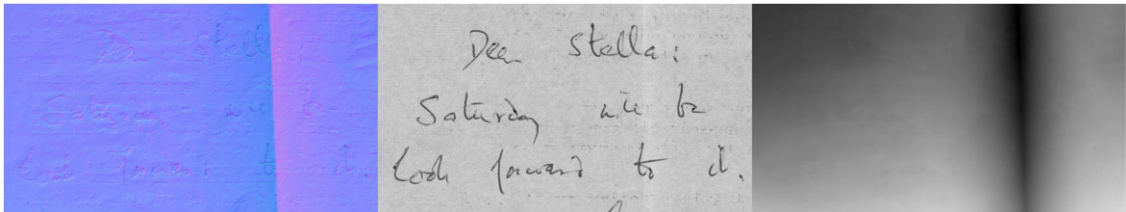 Dear Stella:
Saturday will be
Look forward to it.